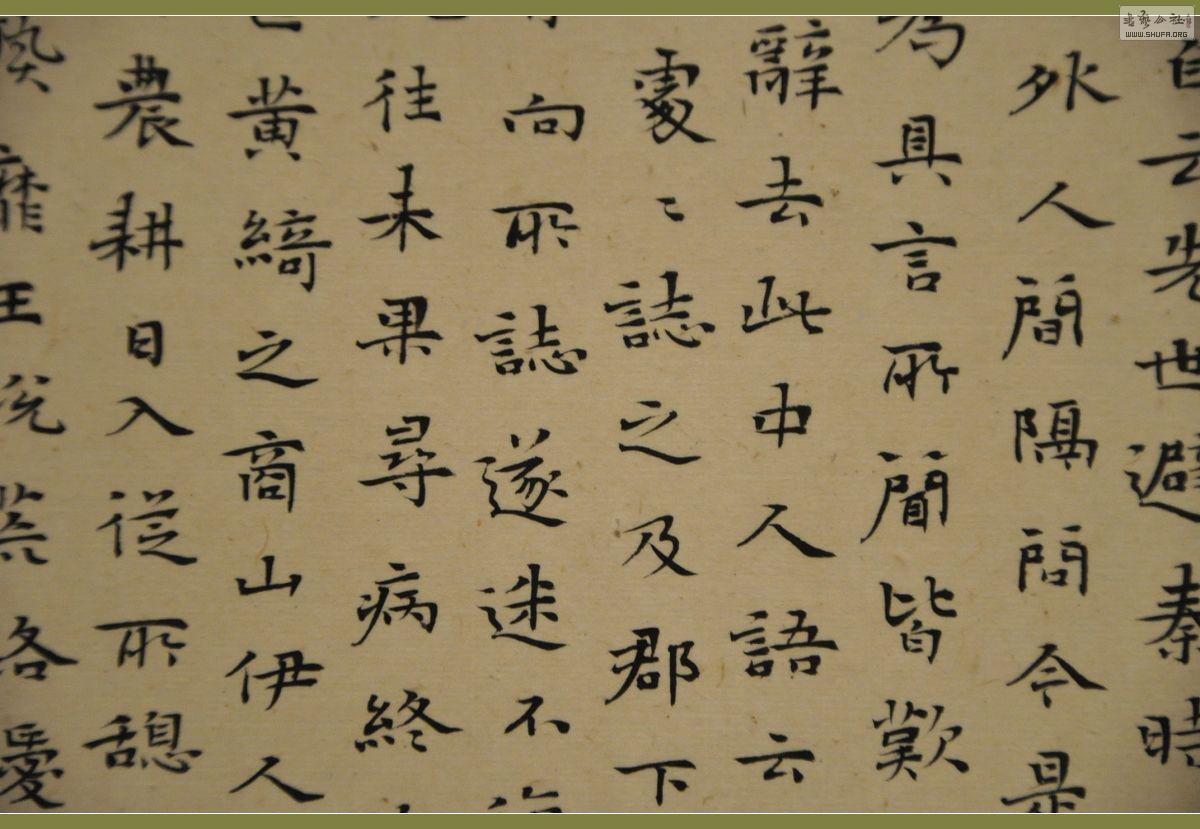 自云先世避秦時
外人間隔問今是
為具言所聞皆歎
辭去此中人語云
處〻誌之及郡下
向所誌遂迷不復
往未果尋病終
黃綺之商山伊人
農耕日入從所憩
王說荒路曖
书艺公社
WWW.SHUFA.ORG